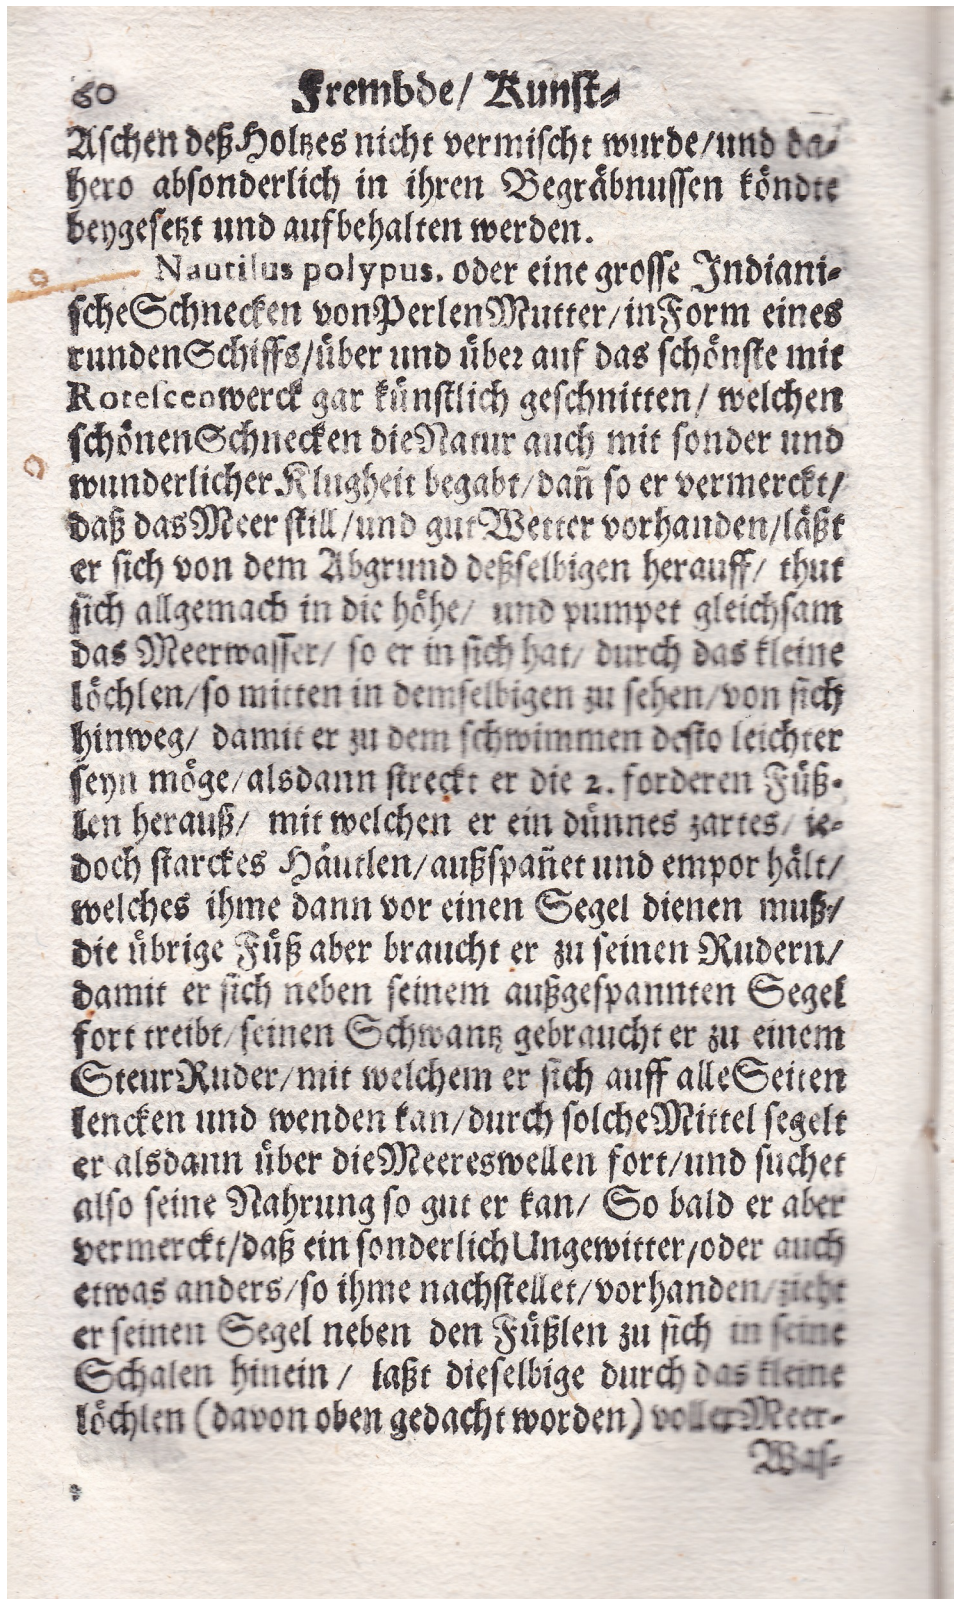 60 Frembde/ Kunst-
Aschen deß Holtzes nicht vermischt wurde/und da-
hero absonderlich in ihren Begräbnussen köndte
beygesetzt und aufbehalten werden.
Nautilus polypus. oder eine grosse Indiani-
sche Schnecken von Perlen Mutter/in Form eines
runden Schiffs/über und über auf das schönste mit
Rotesceowerck gar künstlich geschnitten/ welchen
schönen Schnecken die Natur auch mit sonder und
wunderlicher Klugheit begabt/dañ so er vermerckt/
daß das Meer still/und gut Wetter vorhanden/läßt
er sich von dem Abgrund deßselbigen herauff/ thut
sich allgemach in die höhe/ und pumpet gleichsam
das Meerwasser/ so er in sich hat/ durch das kleine
löchlen/so mitten in demselbigen zu sehen/von sich
hinweg/ damit er zu dem schwimmen desto leichter
seyn möge/alsdann streckt er die 2. forderen Füß-
len herauß/ mit welchen er ein dünnes zartes/ je-
doch starckes Häutlen/außspañet und empor hält/
welches ihme dann vor einen Segel dienen muß/
die übrige Füß aber braucht er zu seinen Rudern/
damit er sich neben seinem außgespannten Segel
fort treibt/seinen Schwantz gebraucht er zu einem
Steur Ruder/mit welchem er sich auff alle Seiten
lencken und wenden kan/durch solche Mittel segelt
er alsdann über die Meereswellen fort/und suchet
also seine Nahrung so gut er kan/ So bald er aber
vermerckt/daß ein sonderlich Ungewitter/oder auch
etwas anders/so ihme nachstellet/vorhanden/zieht
er seinen Segel neben den Füßlen zu sich in seine
Schalen hinein/ laßt dieselbige durch das kleine
löchlen (davon oben gedacht worden) voller Meer-
Was-